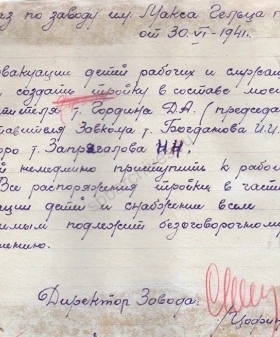 аз по заводу им. Макса Гельца
от 30. VI - 1941.
эвакуации детей рабочих и служа
создать тройку в составе моего
тителя т. Гордина Д.А. (председа
ставителя Завкома т. Богданова И.И.
юро т. Запрягалова И.Н.
й немедленно приступить к рабо
Все распоряжения тройки в част
ации детей и снабжении всем
имым подлежат безоговорочному
нению.
Директор Завода: